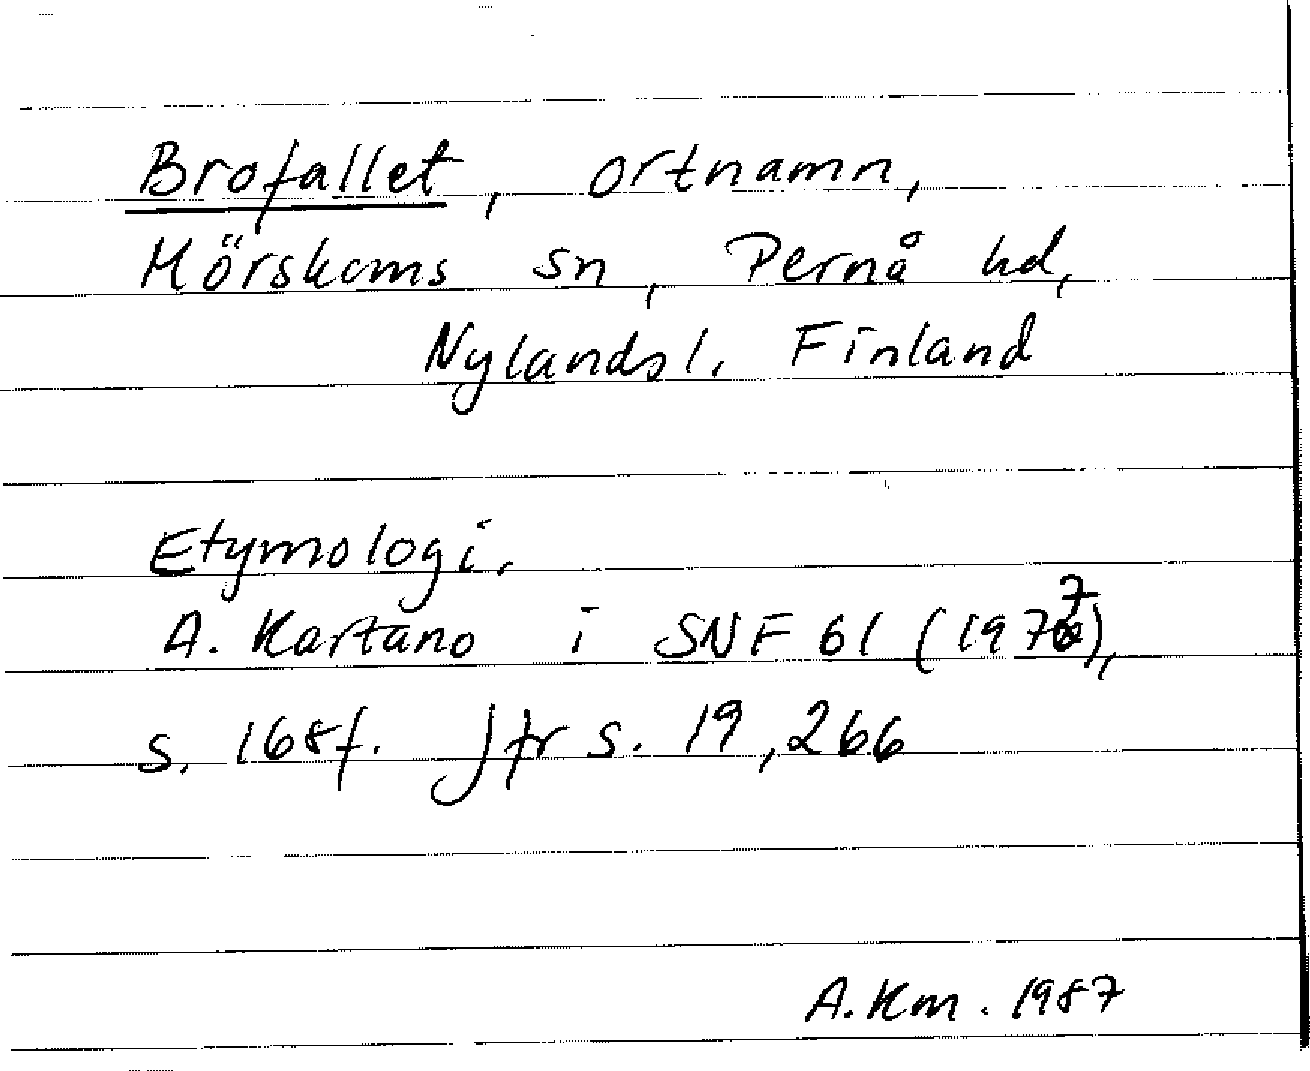 Brofallet, ortnamn,
Mörskoms sn, Pernå hd,
Nylands l. Finland
Etymologi.
A. Kartano i SNF 61 (1977),
s. 168f. Jfr s. 19, 266
A. Km. 1987